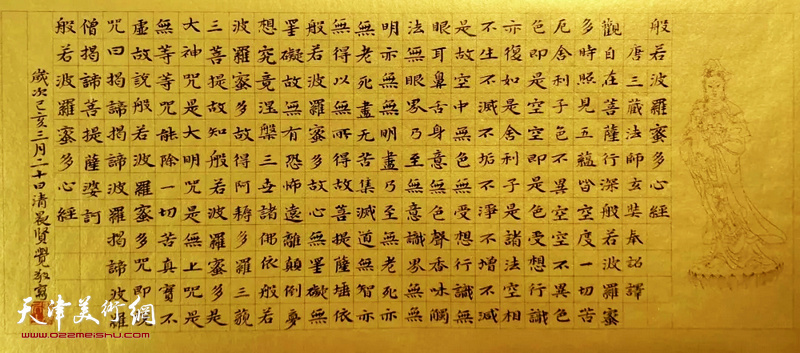 般若波羅蜜多心經
唐三藏法師玄奘奉詔譯
觀自在菩薩行深般若波羅蜜
多時照見五蘊皆空度一切苦
厄舍利子色不異空空不異色
色即是空空即是色受想行識
亦復如是舍利子是諸法空相
不生不滅不垢不淨不增不減
是故空中無色無受想行識無
眼耳鼻舌身意無色聲香味觸
法無眼界乃至無意識界無無
明亦無無明盡乃至無老死亦
無老死盡无苦集滅道無智亦
無得以無所得故菩提薩埵依
般若波羅蜜多故心無罣礙無
罣礙故無有恐怖遠離顛倒夢
想究竟涅槃三世諸佛依般若
波羅蜜多故得阿耨多羅三藐
三菩提故知般若波羅蜜多是
大神咒是大明咒是無上咒是
無等等咒能除一切苦真實不
虛故說般若波羅蜜多咒即說
咒曰揭諦揭諦波羅揭諦波羅
僧揭諦菩提薩婆訶
般若波羅蜜多心經
歲次己亥三月二十日清晨賢覺敬寫
天津美術網
www.022meishu.com